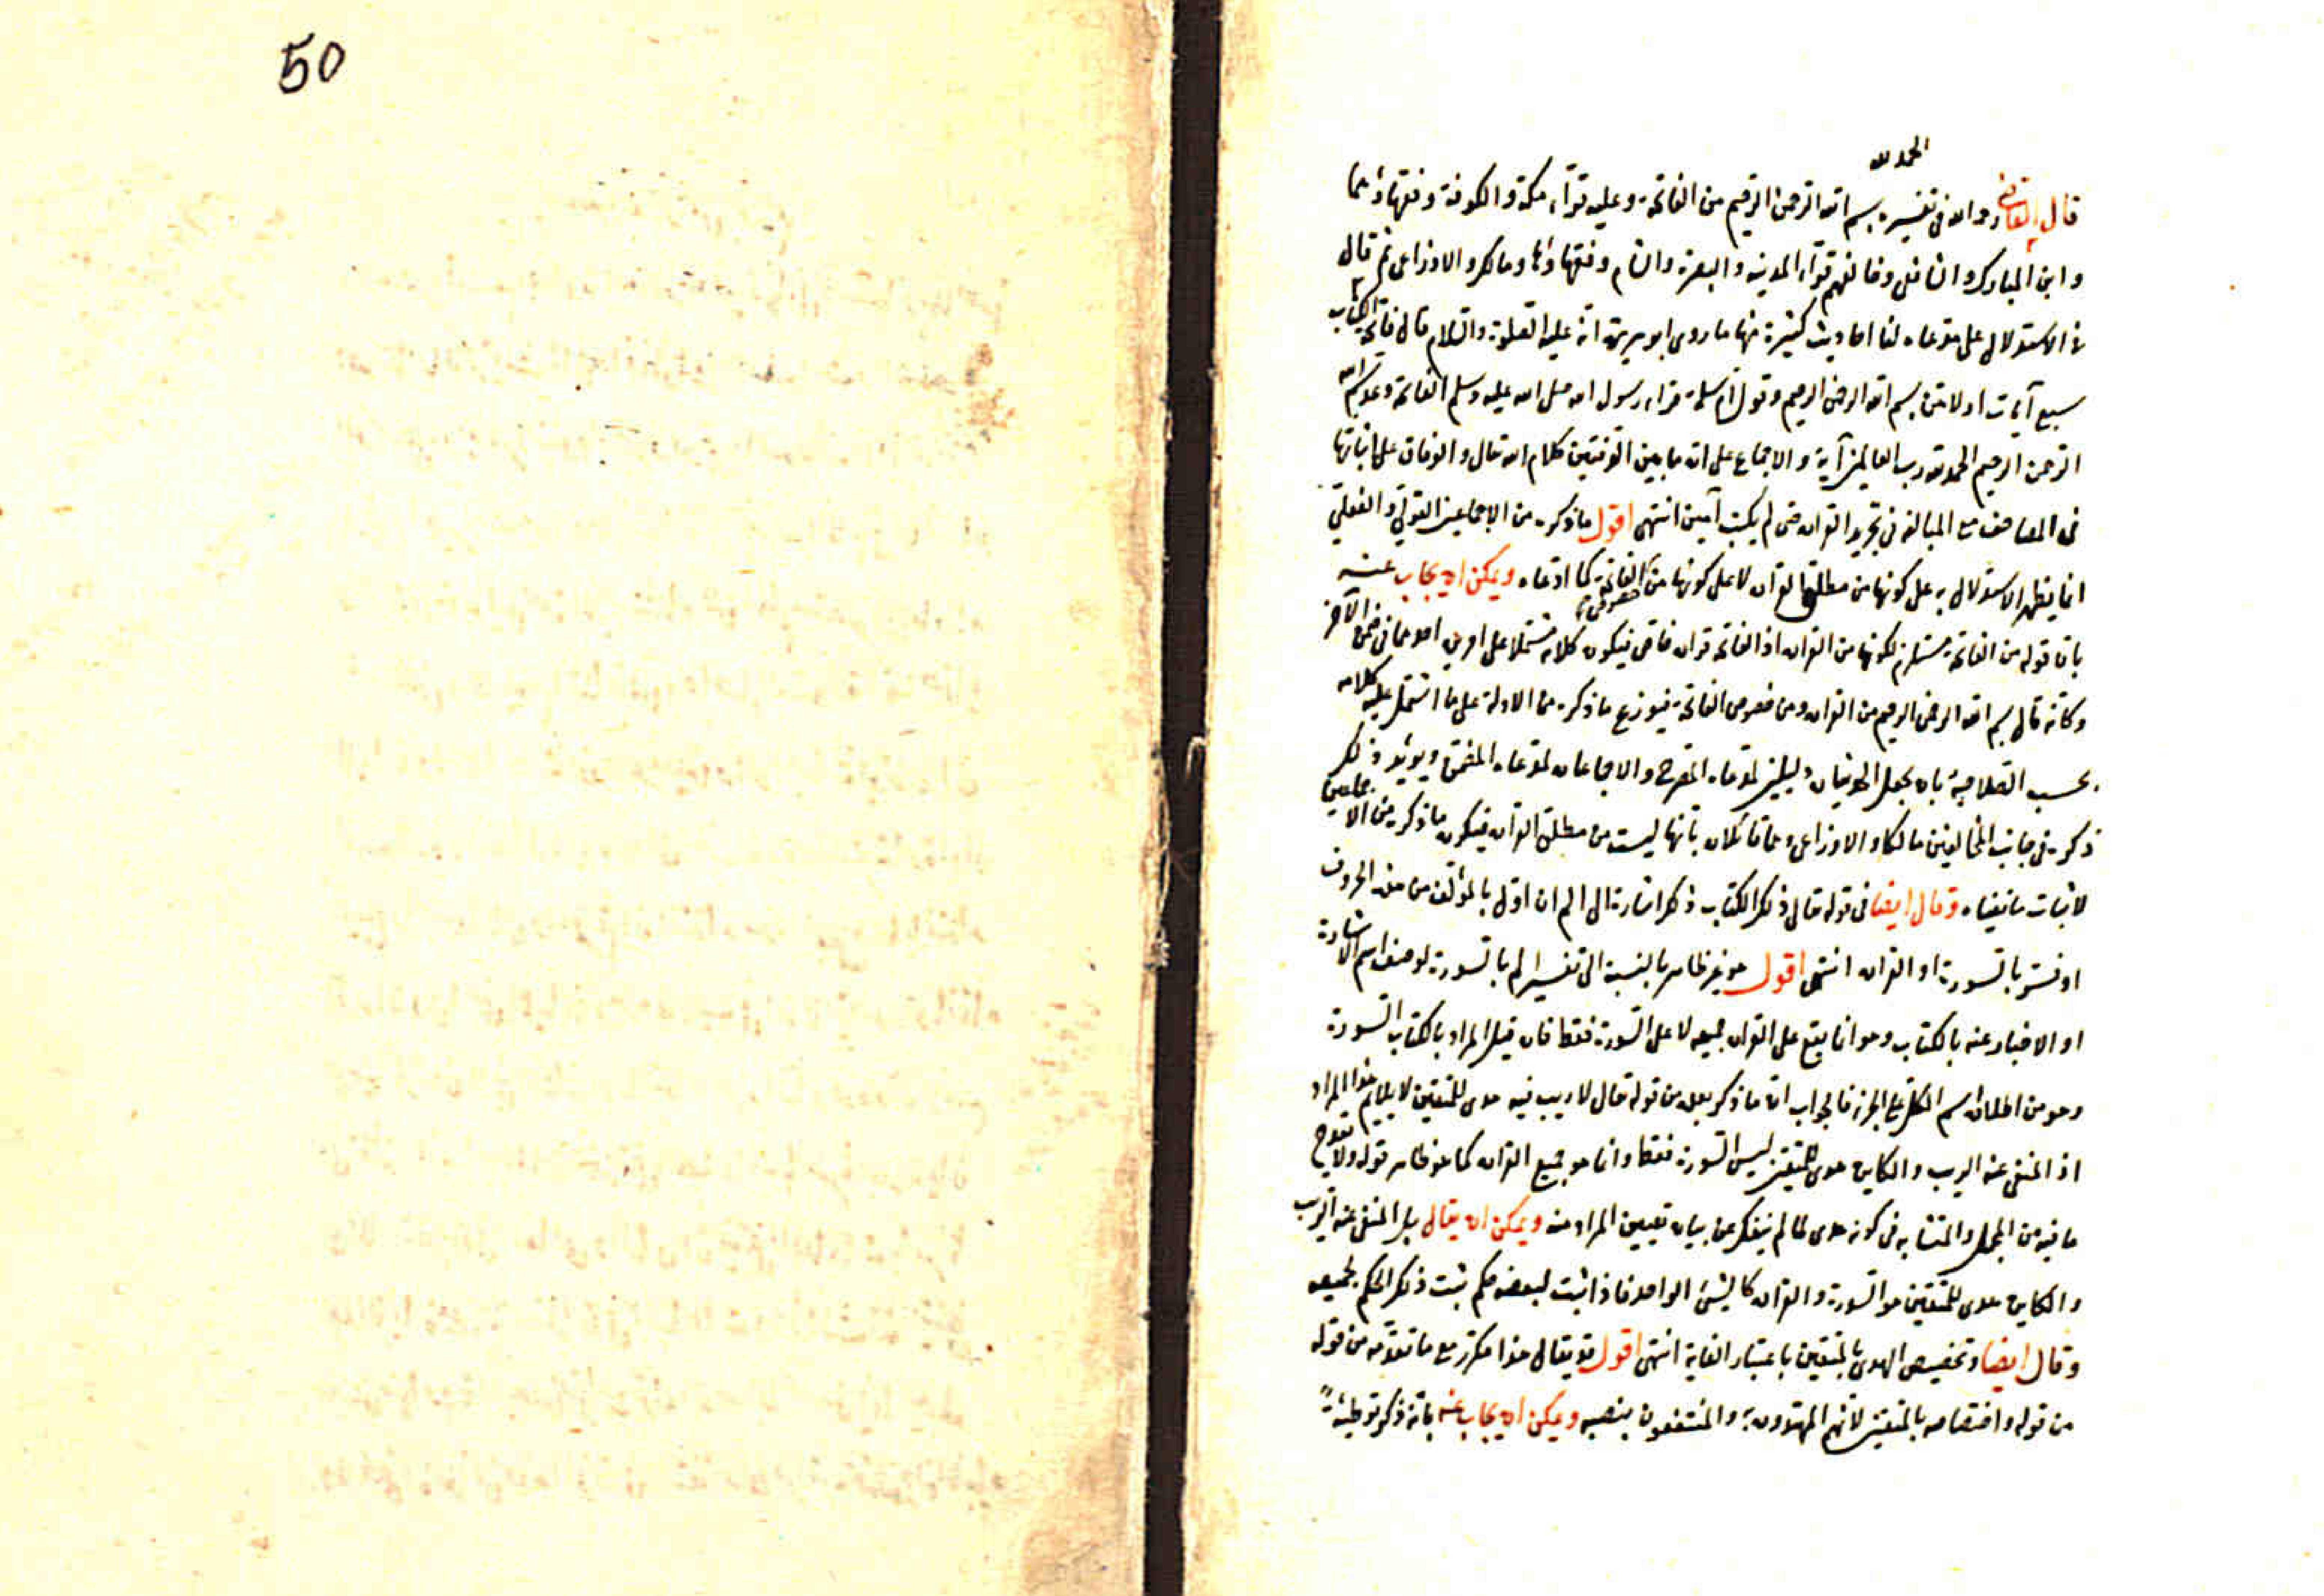 50
الحمد لله
قال القاضي رحمه الله في تفسيره بسم الله الرحمن الرحيم من الفاتحة وعليه قرّاء مكة والكوفة وفقهاؤهما
وابن المبارك والشافعي وخالفهم قرّاء المدينة والبصرة والشام وفقهاؤها ومالك والاوزاعي ثم قال
في الاستدلال على مدعاه لنا احاديث كثيرة منها ما روى ابو هريرة انه عليه الصلوة والسلام قال فاتحة الكتاب
سبع آيات اولاهن بسم الله الرحمن الرحيم وقول ام سلمة قراء رسول الله صلى الله عليه وسلم الفاتحة وعد بسم الله
الرحمن الرحيم الحمد لله رب العالمين آية والاجماع على ان ما بين الدفتين كلام الله تعالى والوفاق على اثباتها
في المصاحف مع المبالغة في تجريد القران حتى لم يكتب آمين انتهى اقول ما ذكره من الاجماعين القولي والفعلي
انما يظهر الاستدلال به على كونها من مطلق القران لا على كونها من الفاتحة كما ادعاه ويمكن ان يجاب عنه
بان قوله من الفاتحة مستلزم لكونها من القران اذ الفاتحة قران خاص فيكون كلامه مشتملا على امرين احدهما في ضمن الآخر
وكانه قال بسم الله الرحمن الرحيم من القران ومن خصوص الفاتحة فيوزع ما ذكره من الادلة على ما اشتمل عليه كلامه
بحسب الصلاحية بان يجعل الحديثان دليلين لمدعاه المصرح والاجماعان لمدعاه المضمن ويؤيد ذلك
ذكره في جانب المخالفين مالكا والاوزاعي وهما قائلان بانها ليست من مطلق القران فيكون ما ذكره من الاجماعين
لاثبات ما نفياه وقال ايضا في قوله تعالى ذلك الكتاب ذلك اشارة الى الم ان اول بالمؤلف من هذه الحروف
او فسر بالسورة او القران انتهى اقول هو غير ظاهر بالنسبة الى تفسير الم بالسورة لوصف اسم الاشارة
او الاخبار عنه بالكتاب وهو انما يقع على القران جميعه لا على السورة فقط فان قيل المراد بالكتاب السورة
وهو من اطلاق اسم الكل على الجزء فالجواب ان ما ذكر بعد من قوله تعالى لا ريب فيه هدى للمتقين لا يلايم هذا المراد
اذ المنفي عنه الريب والكاين هدى للمتقين ليس السورة فقط وانما هو جميع القران كما هو ظاهر قوله ولا يقدح
ما فيه من المجمل والمتشابه في كونه هدى لما لم ينفك عن بيان تعيين المراد منه ويمكن ان يقال بل المنفي عنه الريب
والكاين هدى للمتقين هو السورة والقران كالشئ الواحد فاذا ثبت لبعضه حكم ثبت ذلك الحكم لجميعه
وقال ايضا وتخصيص الهدى بالمتقين باعتبار الغاية انتهى اقول قد يقال هذا مكرر مع ما تقدم من قوله
من قوله واختصاصه بالمتقين لانهم المهتدون به والمنتفعون بنصبه ويمكن ان يجاب عنه بانه ذكر توطئة